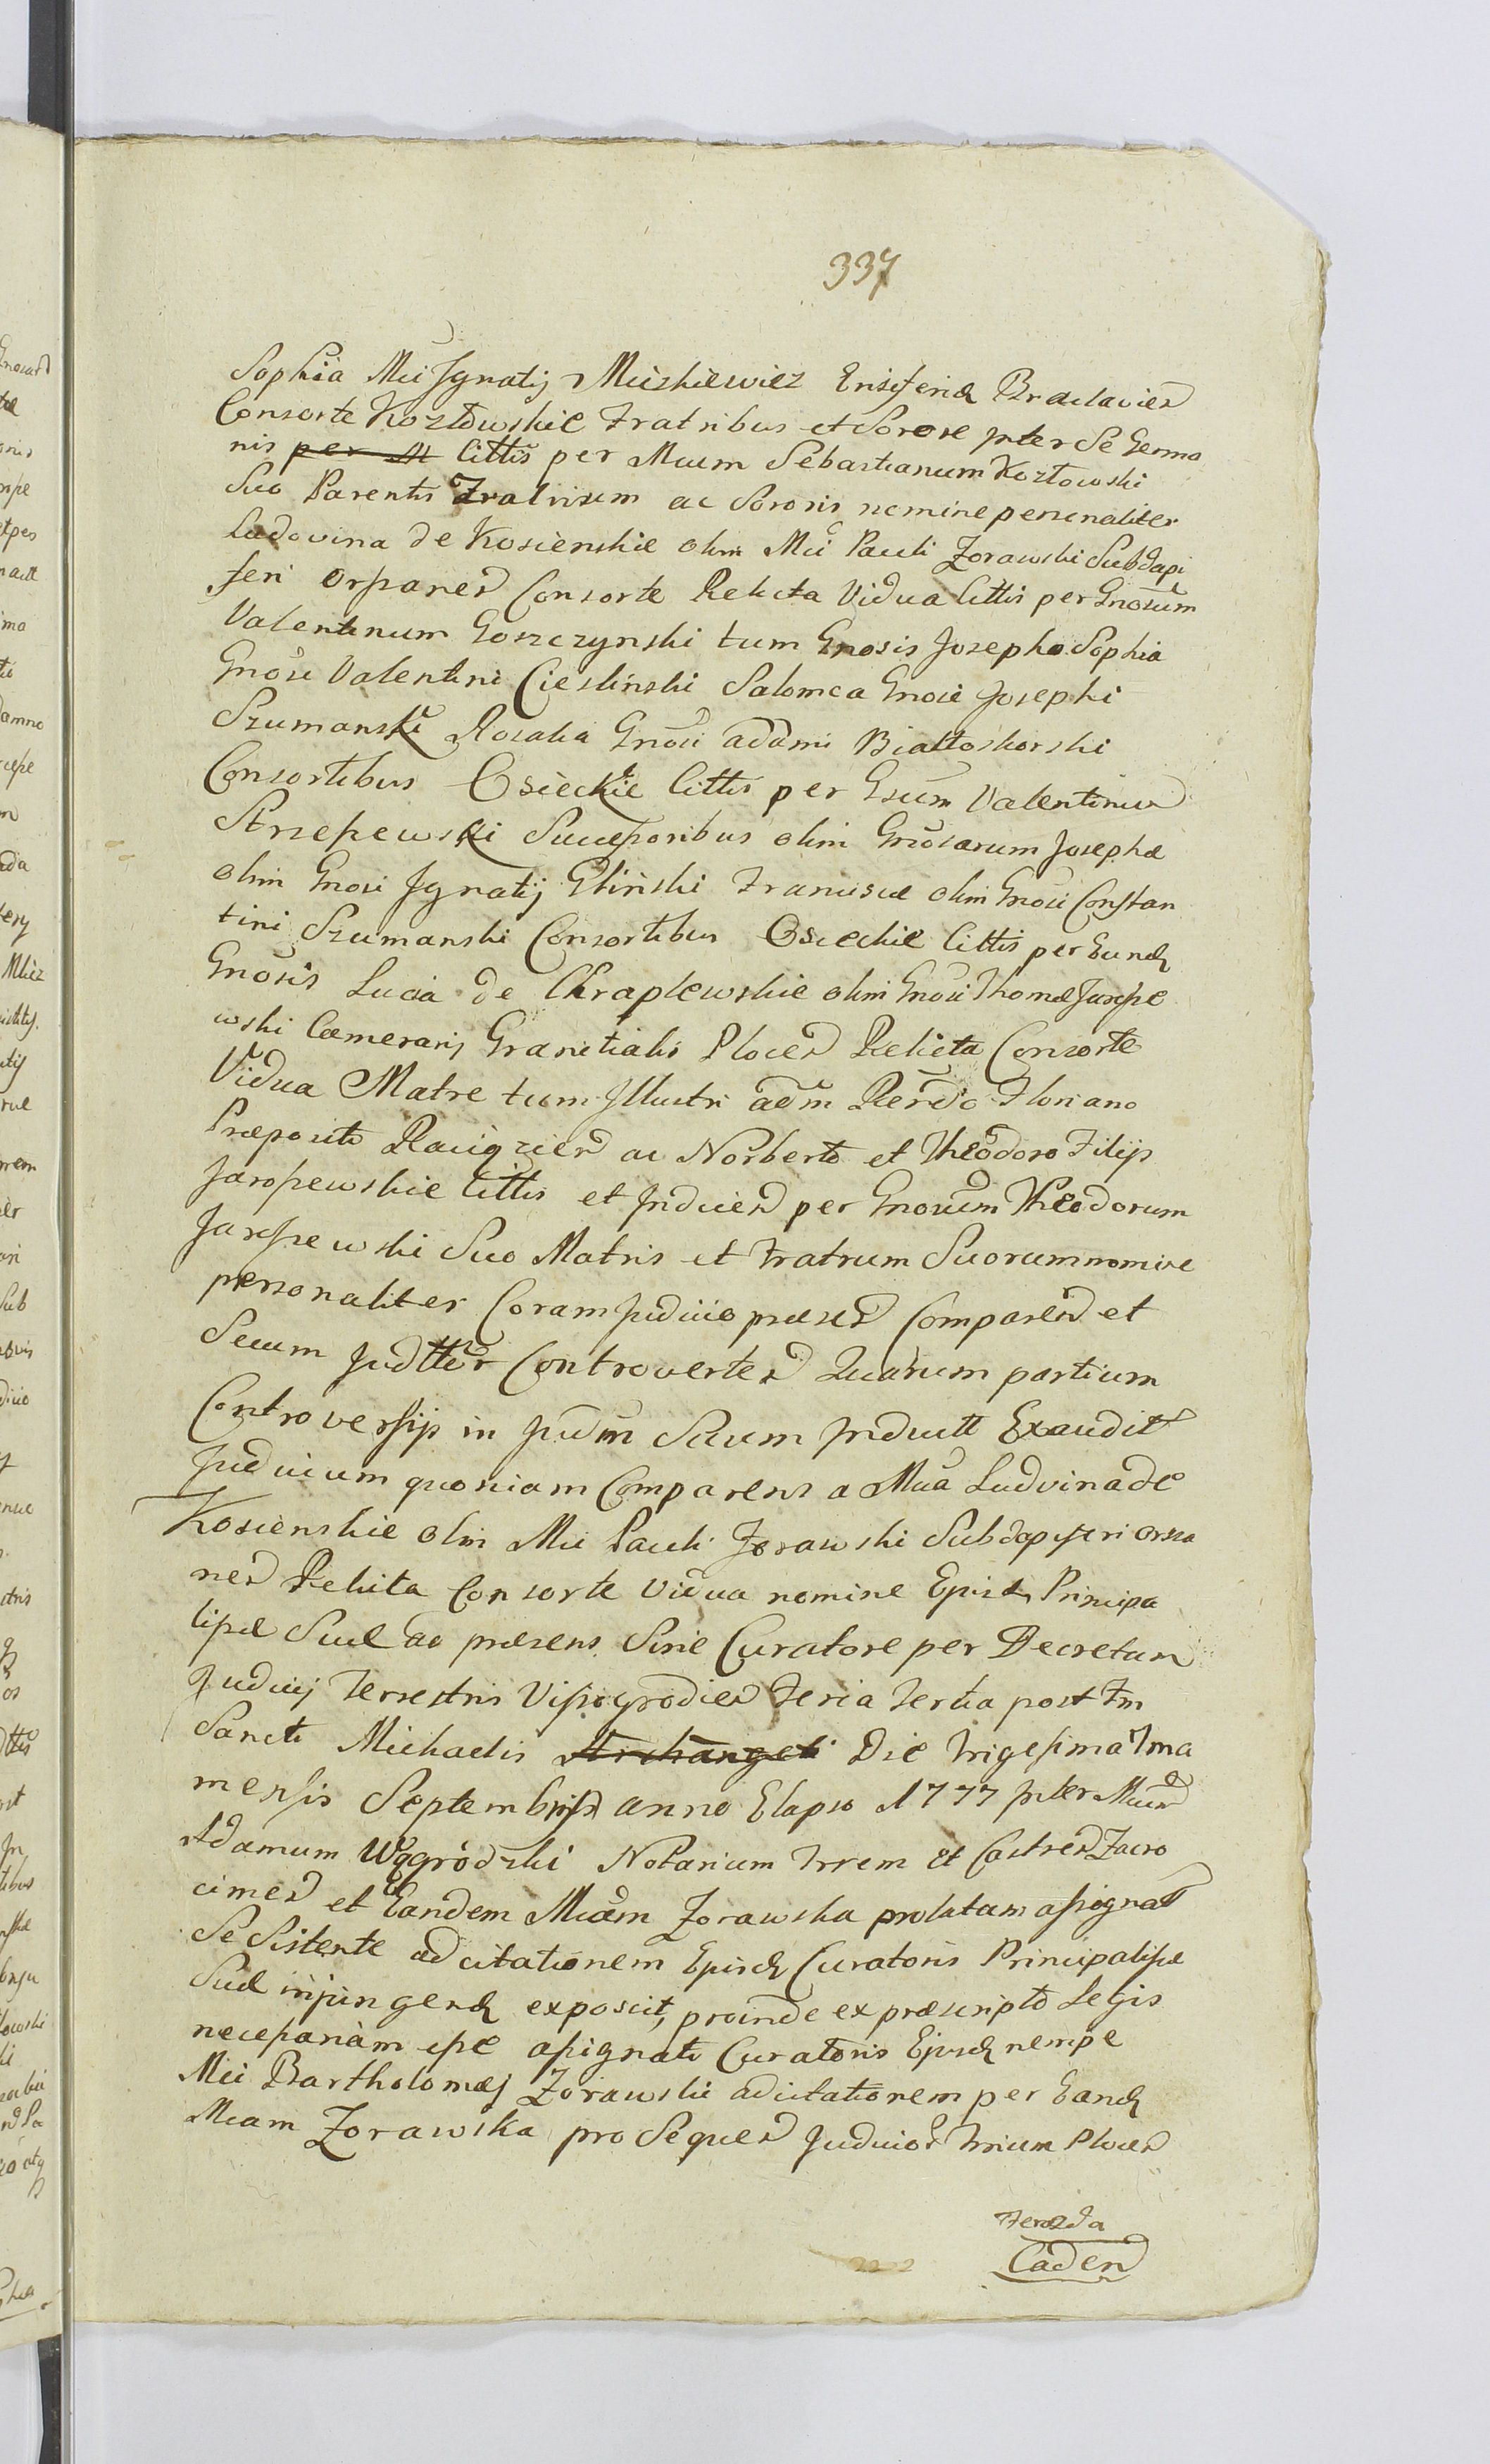 337
Sophia Mci Ignatij Miszkiewicz Ensiferid Braclavien
Consorte Kozłowskie Fratribus et Sorore Inter Se Germa
nis per M Cittis per Mcum Sebastianum Kozłowski
Suo Parentis Fratrum ac Sororis nomine personaliter
Ludovina de Kosienskie olim Mci Pauli Zorawski Subdapi
feri Orsanen Consorte Relicta Vidua Cittis per Gnosum
Valentinum Goszczynski tum Gnosis Josepho Sophia
Gnosi Valentini Cieslinski Salomea Gnosi Josephi
Szumanski Rosalia Gnosi adami Białłoskorski
Consortibus Osieckie Cittis per Gsum Valentinum
Strzeszewski Successoribus olim Gnosarum Josephæ
olim Gnosi Ignatij Glinski Franciscæ olim Gnosi Constan
tini Szumanski Consortibus Osieckie Cittis per Eundq
Gnosis Lucia de Chraplewskie olim Gnosi Thomæ Jarosze
wski Camerarij Granitialis Plocen Relicta Consorte
Vidua Matre tum Illustri adm Rerdo Floriano
Præposito Raciązien ac Norberto et Theodoro Filijs
Jaroszewskie Cittis et Inducen per Gnosum Theodorum
Jaroszewski Suo Matris et Fratrum Suorum nomine
personaliter Coram Judicio præsen Comparen et
Secum Judtter Controverten Quarum partium
Controversijs in Judm Suum Inductt Exaudit
Judicium quoniam Comparens a Mca Ludvina de
Kosienskie olim Mci Pauli Zorawski Subdapiferi orsa
nen Relicta Consorte Vidua nomine Ejusd Principa
lissæ Suæ ac præsens Sine Curatore per Decretum
Judicij Terrestris Vissogrodien Feria tertia post Fm
Sancti Michaelis Archangeli Die trigesima Ima
mensis Septembris anno Elapso 1777 Inter Mcum
Adamum Wągrodzki Notarium Trrem et Castren Zacro
cimen et Eandem Mcam Zorawska prolatam assignat
Se Sistente ad citationem Ejusdq Curatoris Principalissæ
Suæ injungendq exposcit, proinde ex præscripto Legis
necessariam esse assignati Curatoris Ejusdq nempe
Mci Bartholomæj Zorawski adcitationem per Eandq
Mcam Zorawska pro Sequen Judicior Trrium Plocen
Caden